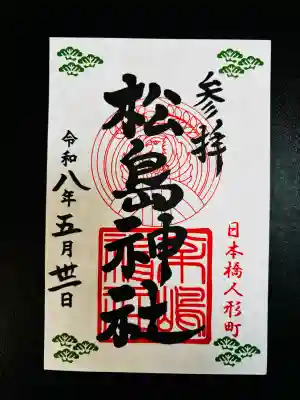 参拝
日本橋人形町
松島神社
令和八年五月卅一日